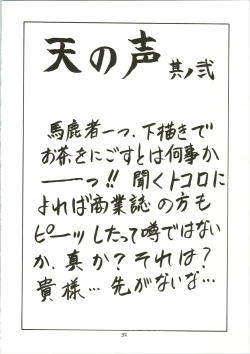 天の声 其ノ弐
馬鹿者ーっ、下描きで
お茶をにごすとは何事か
───っ!! 聞くトコロに
よれば商業誌の方も
ピーッしたって噂ではない
か、真か?それは?
貴様…先がないな…